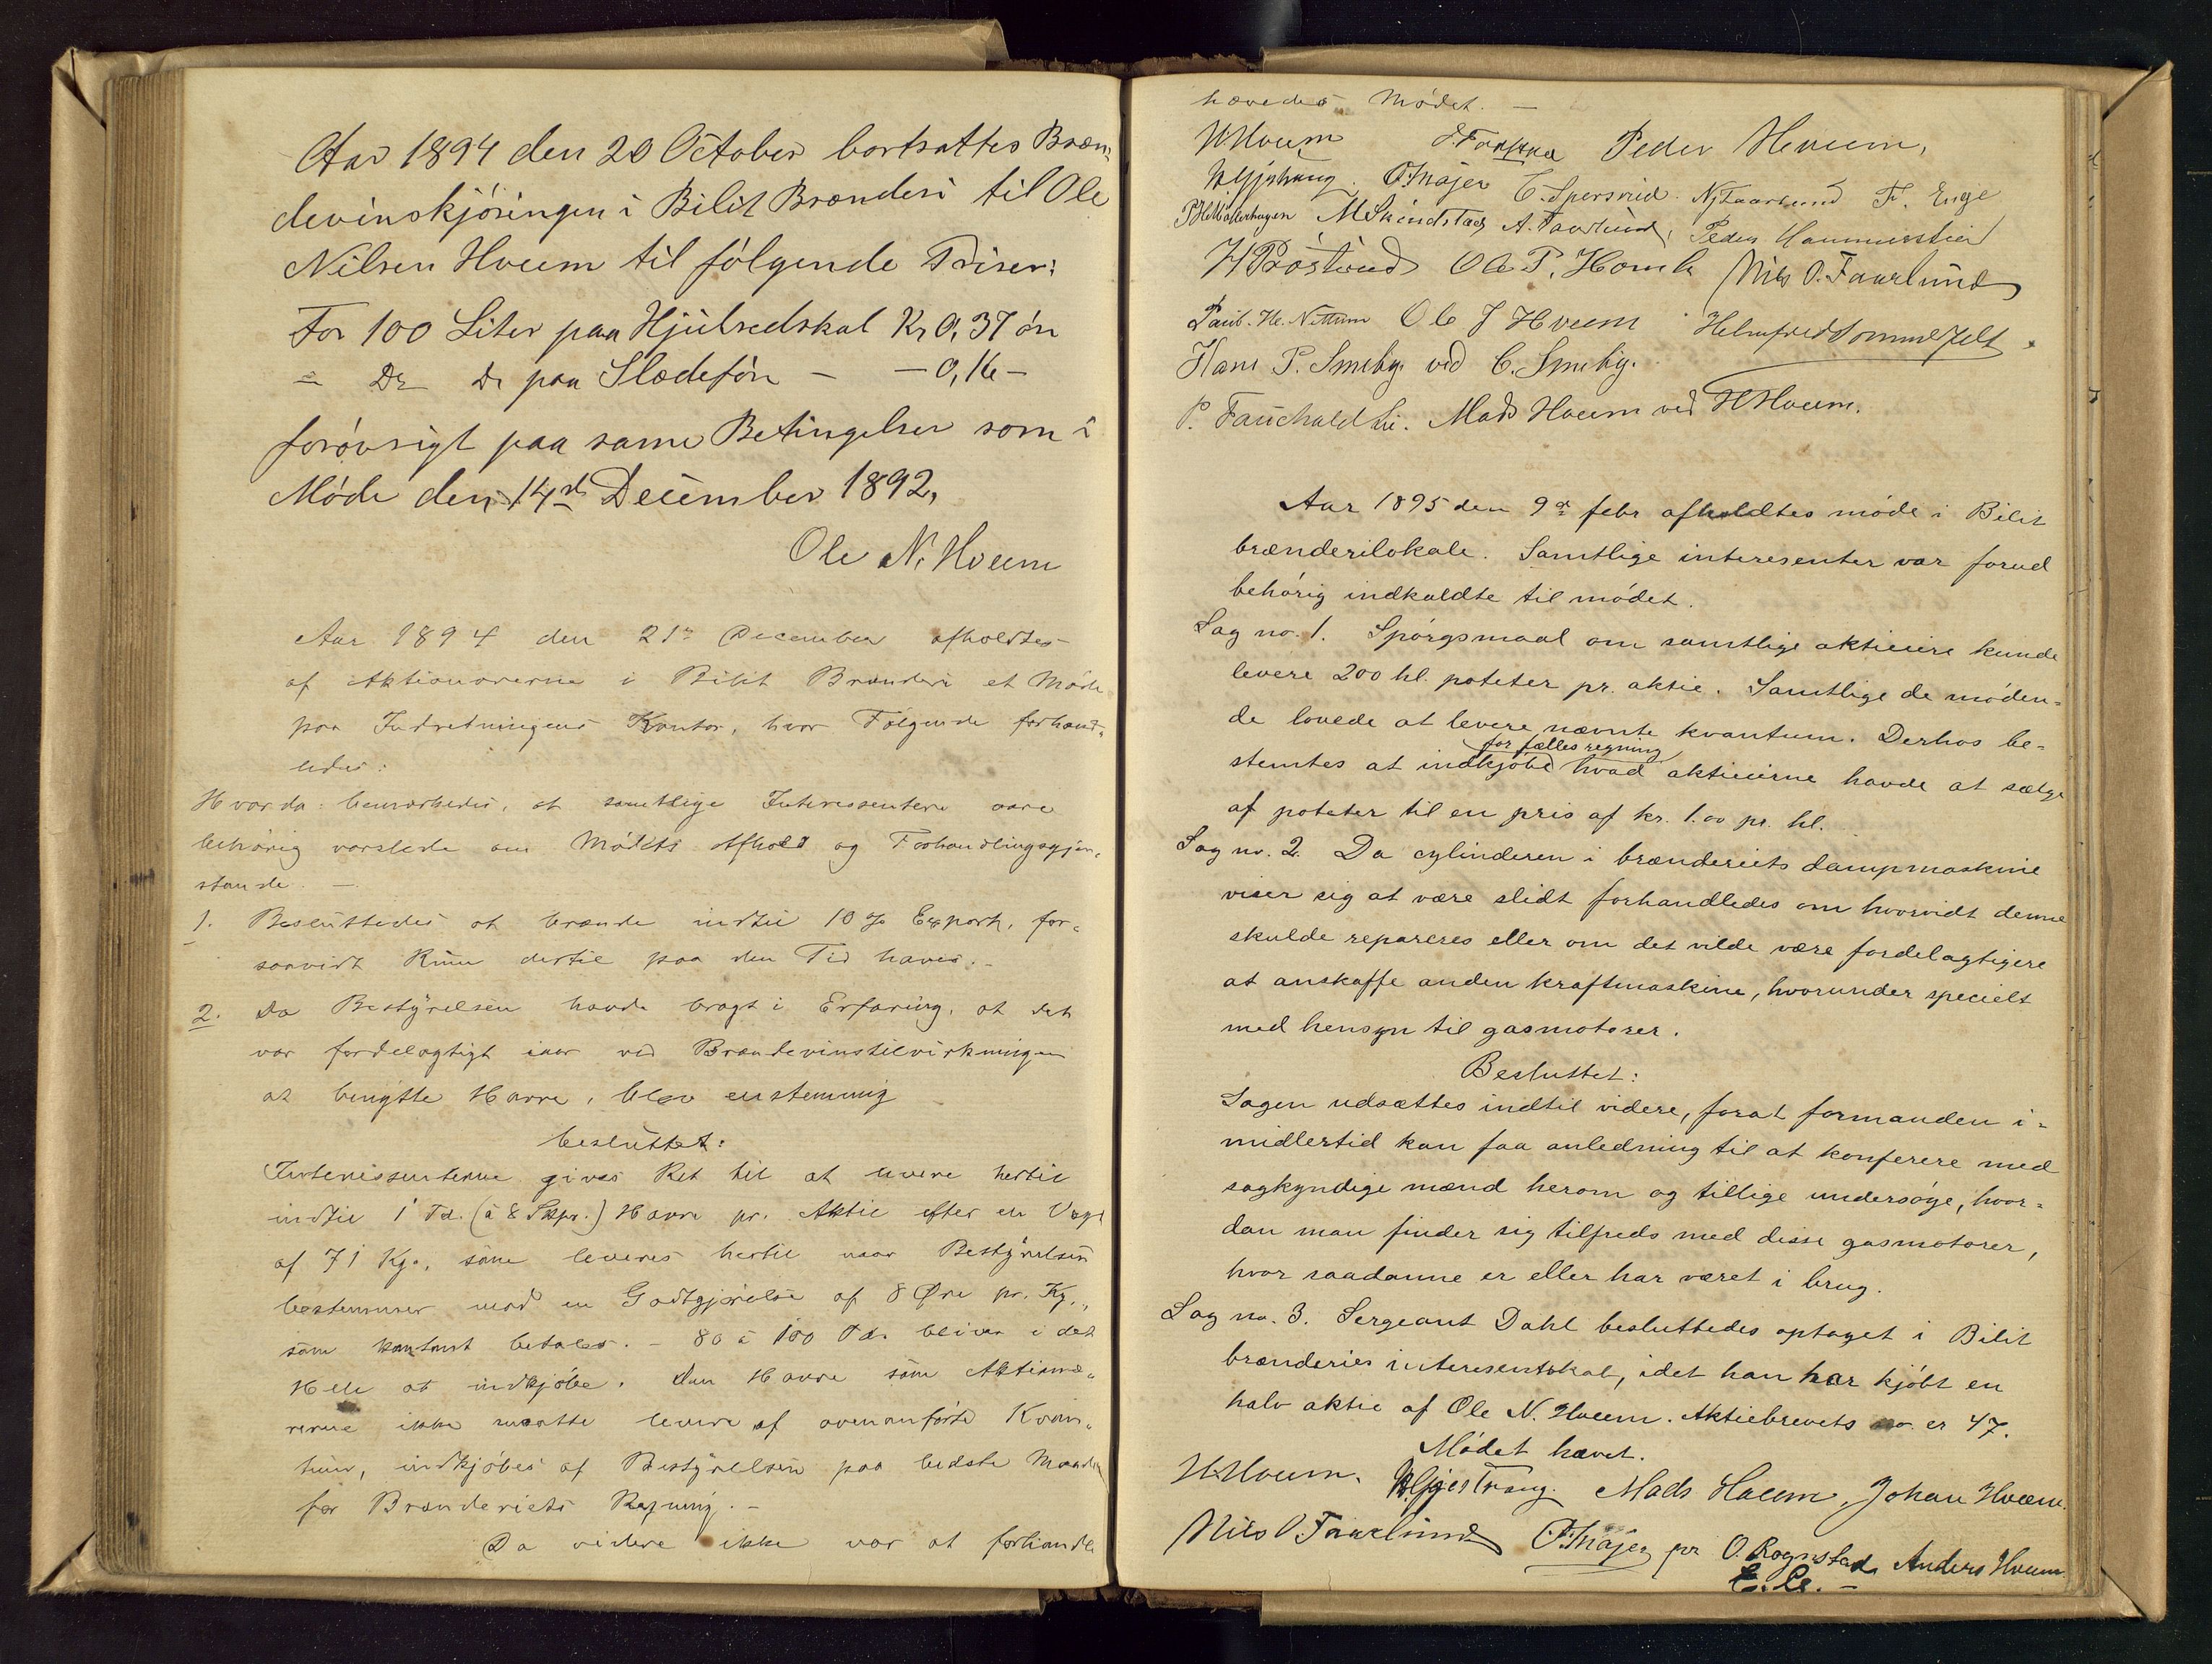 Aar 1894 den 20 October bortsattes Bræn,
devinskjøringen i Bilit Brænderi til Ole
Nilsen Hveem til følgende Priser:
For 100 Liter paa Hjulredskab Kr 0,37 øre
" Do Do paa Slædeføre - - 0,16 -
forøvrigt paa same Betingelser som i
Møde den 14de December 1892,
Ole N. Hveem
Aar 1894 den 21de December afholdtes
af Aktionærerne i Bilit Brænderi et Møde
paa Indretningens Kontor, hvor Følgende forhand„
ledes:
Hvorda bemærkedes, at samtlige Interessentere vare
behørig varslede om Mødets Afhold og Forhandlingsgjen„
stande. —
1. Besluttedes at brænde indtil 10 % Export, for„
saavidt Rum dertil paa den Tid haves. -
2. Da Bestyrelsen havde bragt i Erfaring, at det
var fordelagtigt iaar ved Brændevinstilvirkningen
at benytte Havre, blev enstemmig
besluttet:
Interessenterne gives Ret til at levere hertil
indtil 1 Td. (à 8 Skpr.) Havre pr. Aktie efter en Vægt
af 71 Kg., som leveres hertil naar Bestyrelsen
bestemmer mod en Godtgjørelse af 8 Øre pr. Kg.,
som kontant betales. - 80 à 100 Td. bliver i det
Hele at indkjøbe. Den Havre som Aktionæ„
rerne ikke maatte levere af ovenanførte Kvan„
tum, indkjøbes af Bestyrelsen paa bedste Maade
for Brænderiets Regning. -
Da videre ikke var at forhandle
hævedes Mødet. —
H. Hveem Peder Hveem,
O. Majer N. Faarlund F. Enge
M Skindstad A. Faarlund, Peder Hammerstad
H Røstüd Ole P. Homb Nils O. Faarlund
Paul. He. Nettum Ole J Hveem Helmfred Sommerfelt.
Hans P. Smeby ved C. Smeby.
P. Fauchald Mads Hveem ved H Hveem.
Aar 1895 den 9de febr afholdtes møde i Bilit
brænderilokale. Samtlige interesenter var forud
behørig indkaldte til mødet.
Sag no. 1. Spørgsmaal om samtlige aktieiere kunde
levere 200 hl. poteter pr. aktie. Samtlige de møden=
de lovede at levere nævnte kvantum. Derhos be=
for fælles regning
stemtes at indkjøbe hvad aktieeierne havde at sælge
af poteter til en pris af kr. 1.00 pr. hl.
Sag no. 2. Da cylinderen i brænderiets dampmaskine
viser sig at være slidt forhandledes om hvorvidt denne
skulde repareres eller om det vilde være fordelagtigere
at anskaffe anden kraftmaskine, hvorunder specielt
med hensyn til gasmotorer.
Besluttet:
Sagen udsættes indtil videre, forat formanden i=
midlertid kan faa anledning til at konferere med
sagkyndige mænd herom og tillige undersøge, hvor=
dan man finder sig tilfreds med disse gasmotorer,
hvor saadanne er eller har været i brug.
Sag no. 3. Sergeant Dahl besluttedes optaget i Bilit
brænderies interesentskab, idet han har kjøbt en
halv aktie af Ole N. Hveem. Aktiebrevets no. er 47.
Mødet hævet.
H. Hveem. Mads Hveem, Johan Hveem.
Nils O. Faarlund O. Majer pr O. Rognstad Anders Hveem.